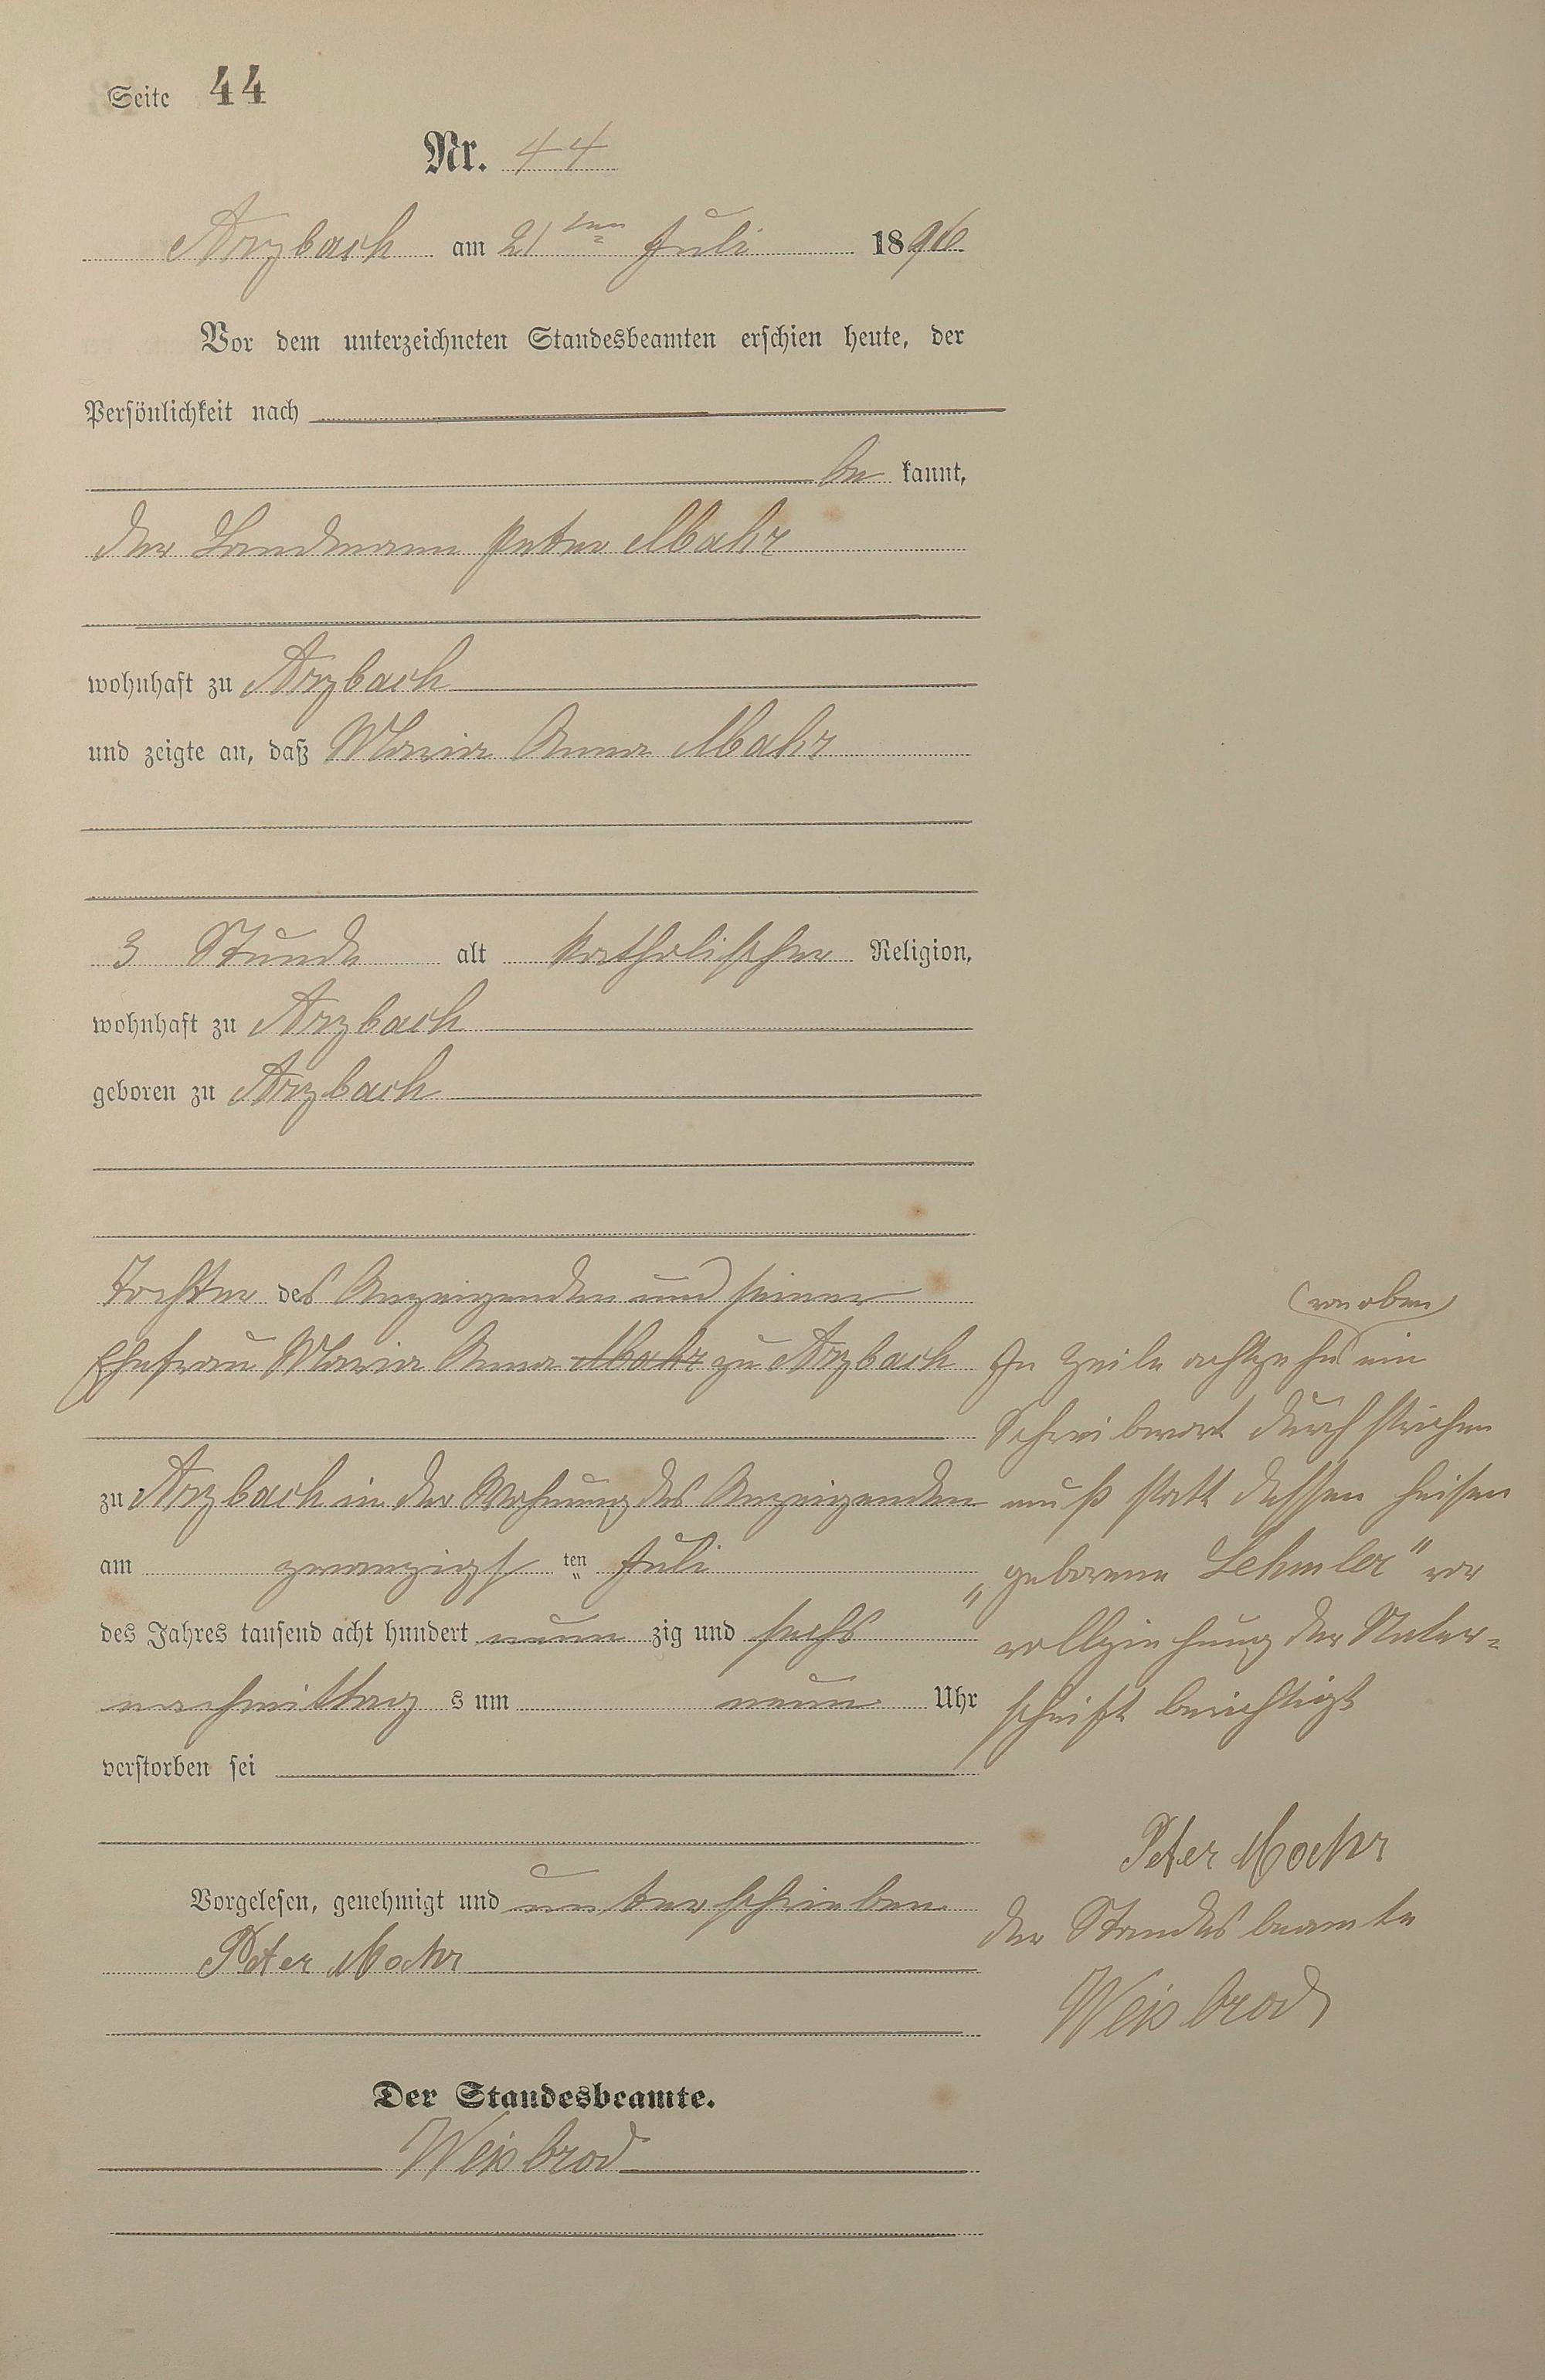 Seite 44
Nr. 44
Arzbach am 21ten Juli 1896
Vor dem unterzeichneten Standesbeamten erschien heute, der
Persönlichkeit nach
be kannt,
der Landmann Peter Mohr
wohnhaft zu Arzbach
und zeigte an, daß Maria Anna Mohr
3 Stunde alt katholischer Religion,
wohnhaft zu Arzbach
geboren zu Arzbach
Tochter des Anzeigenden und seiner
Ehefrau Maria Anna Mohr zu Arzbach
zu Arzbach in der Wohnung des Anzeigenden
am zwanzigsten Juli
des Jahres tausend acht hundert neun zig und sechs
nachmittag s um neun Uhr
verstorben sei
Vorgelesen, genehmigt und unterschrieben
Peter Mohr
Der Standesbeamte.
Weisbrod
(von oben)
In Zeile achtzehn ein
Schreibwort durchstrichen
muß statt dessen heisen
„geborene Lehmler" vor
vollziehung der Unter=
schrift berichtigt
Peter Mohr
der Standesbeamte
Weisbrod